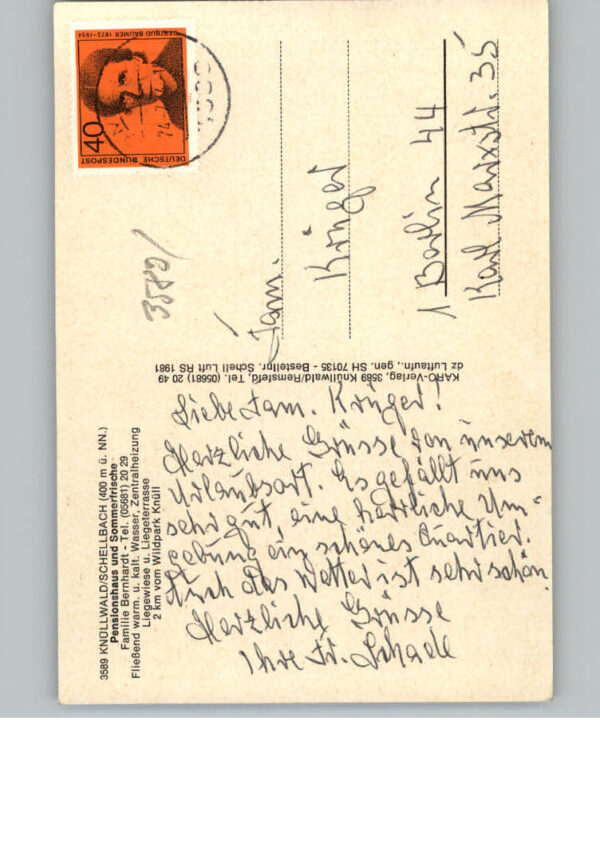 3589 KNÜLLWALD/SCHELLBACH (400 m ü. NN.)
Pensionshaus und Sommerfrische
Familie Bernhardt - Tel. (05681) 20 29
Fließend warm. u. kalt. Wasser, Zentralheizung
Liegewiese u. Liegeterrasse
2 km vom Wildpark Knüll
Liebe Fam. Krüger!
Herzliche Grüsse von unserem
Urlaubsort. Es gefällt uns
sehr gut, eine herrliche Um=
gebung ein schönes Quartier.
Auch das Wetter ist sehr schön.
Herzliche Grüsse
Ihre Fr. Schade
KARO-Verlag, 3589 Knüllwald/Remsfeld, Tel. (05681) 20 49
dz Luftaufn., gen. SH 70135 - Bestellnr. Schell Luft RS 1981
GERTRUD BÄUMER 1873-1954
40
DEUTSCHE BUNDESPOST
3589/
Fam.
Krüger
1 Berlin 44
Karl Marxstr. 35